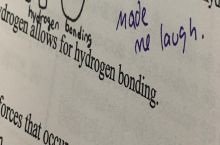 made
me laugh.
hydrogen bonding
drogen allows for hydrogen bonding.
forces that occur